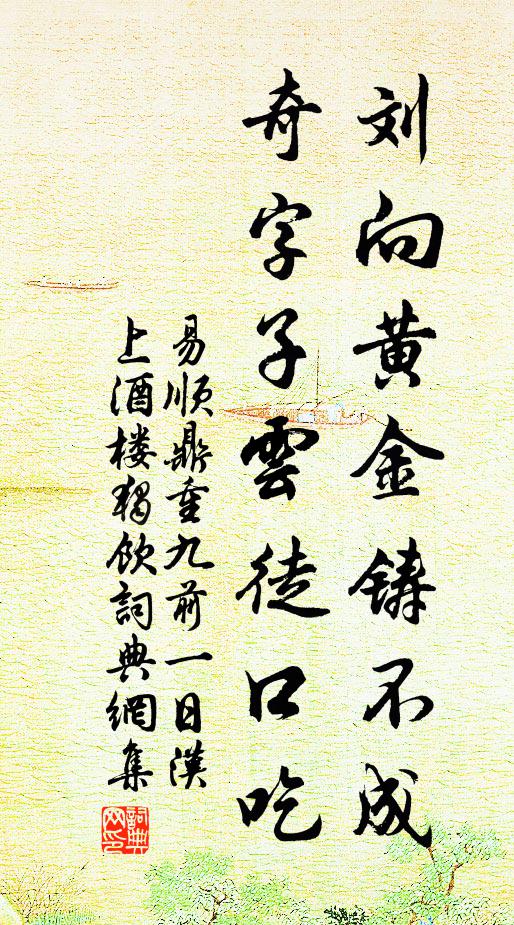 刘向黄金铸不成
奇字子雲徒口吃
易順鼎重九前一日漢
上酒楼独飲詞典網集
詞典
网印